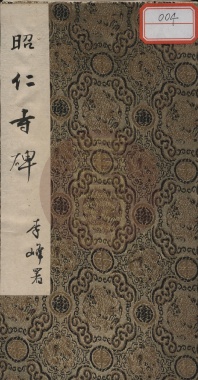 昭仁寺碑
李峰署
004